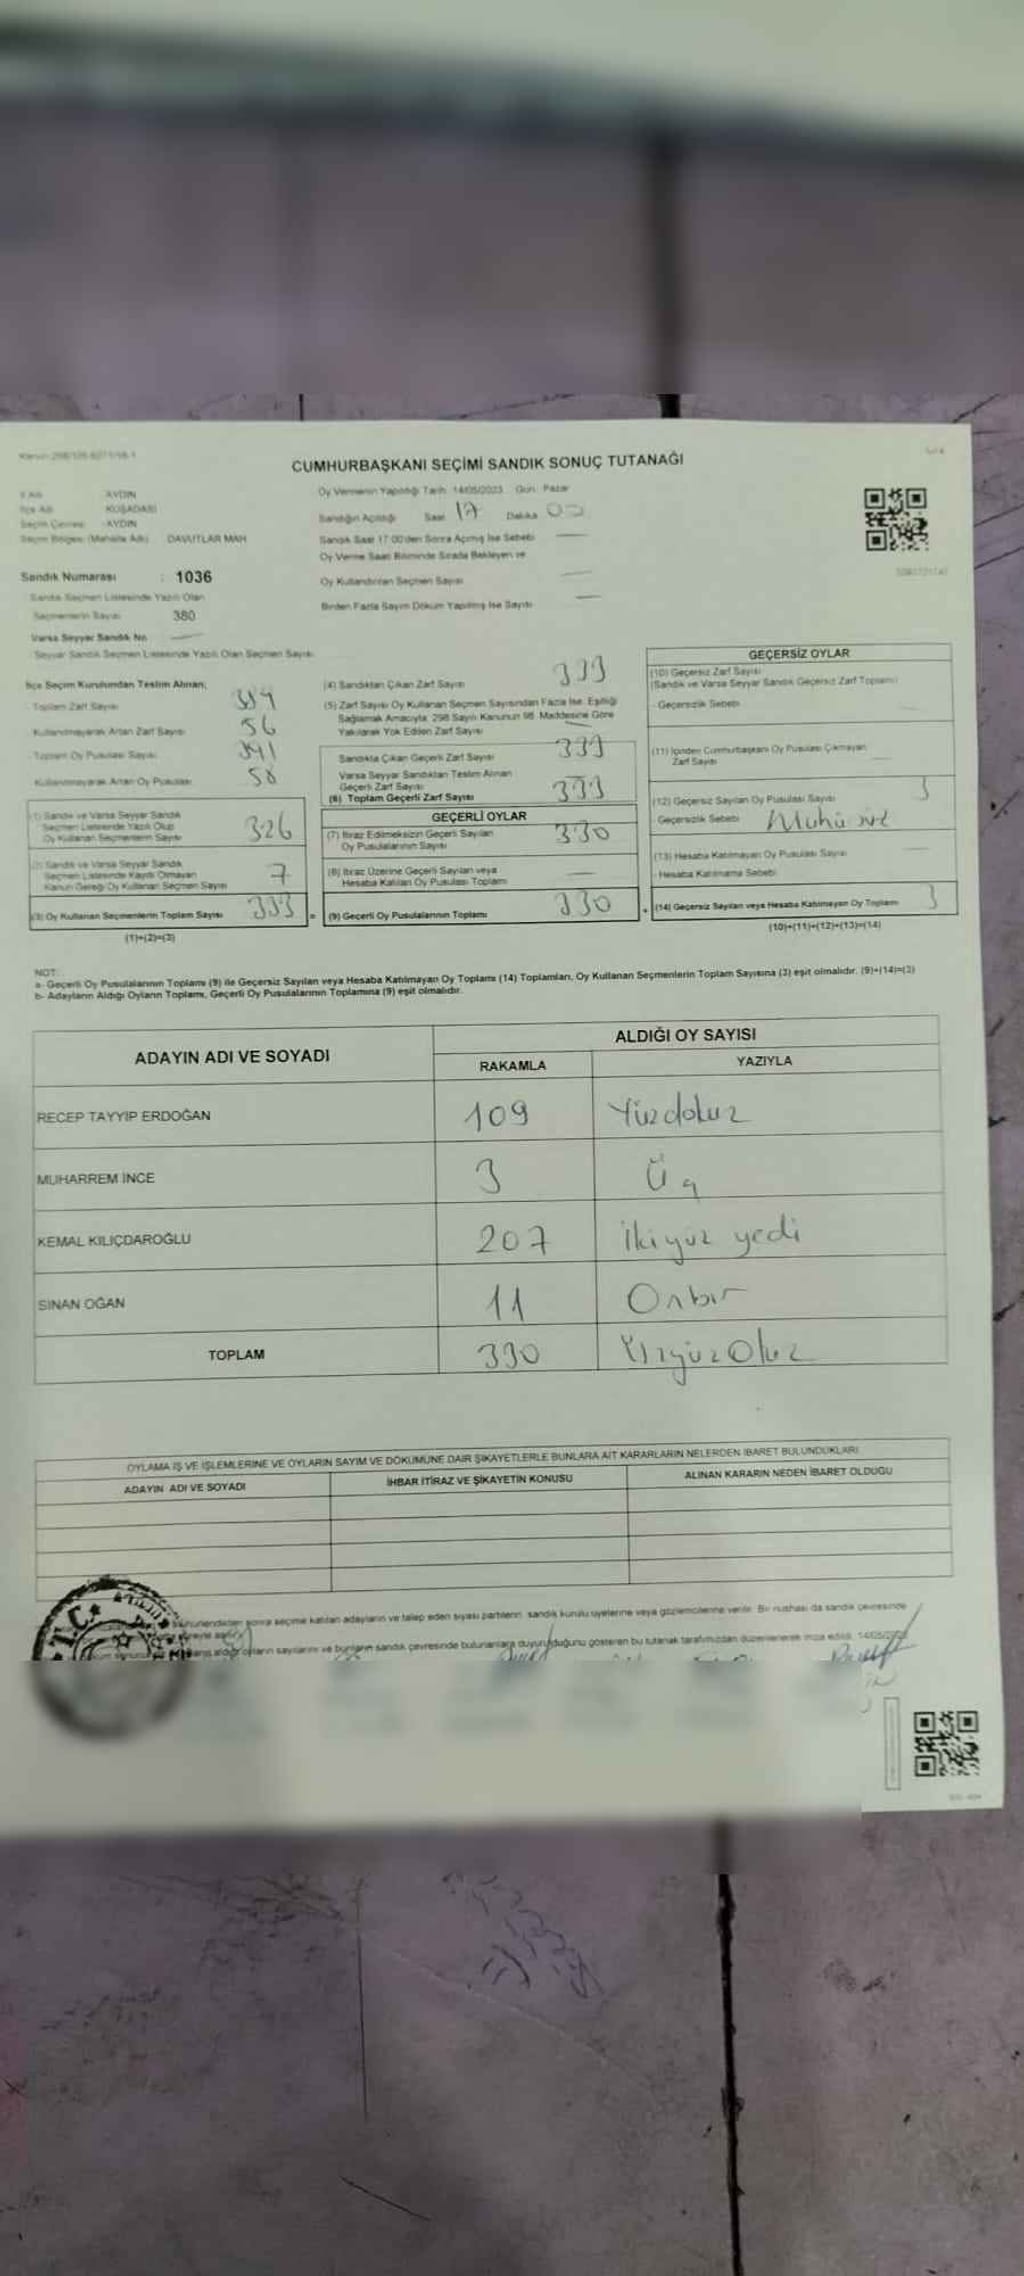 CUMHURBAŞKANI SEÇİMİ SANDIK SONUÇ TUTANAĞI
İl Adı AYDIN
İlçe Adı KUŞADASI
Seçim Çevresi AYDIN
Seçim Bölgesi (Mahalle Adı) DAVUTLAR MAH
Sandık Numarası : 1036
Sandık Seçmen Listesinde Yazılı Olan
Seçmenlerin Sayısı 380
Varsa Seyyar Sandık No
Seyyar Sandık Seçmen Listesinde Yazılı Olan Seçmen Sayısı
Oy Vermenin Yapıldığı Tarih 14/05/2023 Gün: Pazar
Sandığın Açıldığı Saat 17 Dakika 00
Sandık Saat 17:00'den Sonra Açılmış İse Sebebi
Oy Verme Saati Bitiminde Sırada Bekleyen ve
Oy Kullandırılan Seçmen Sayısı
Birden Fazla Sayım Döküm Yapılmış İse Sayısı
İlçe Seçim Kurulundan Teslim Alınan;
Toplam Zarf Sayısı
Kullanılmayarak Artan Zarf Sayısı 56
Toplam Oy Pusulası Sayısı 391
Kullanılmayarak Artan Oy Pusulası 58
(1) Sandık ve Varsa Seyyar Sandık
Seçmen Listesinde Yazılı Olup
Oy Kullanan Seçmenlerin Sayısı 326
(2) Sandık ve Varsa Seyyar Sandık
Seçmen Listesinde Kayıtlı Olmayan
Kanun Gereği Oy Kullanan Seçmen Sayısı 7
(3) Oy Kullanan Seçmenlerin Toplam Sayısı 333
(1)+(2)=(3)
(4) Sandıktan Çıkan Zarf Sayısı 333
(5) Zarf Sayısı Oy Kullanan Seçmen Sayısından Fazla İse; Eşitliği
Sağlamak Amacıyla; 298 Sayılı Kanunun 98. Maddesine Göre
Yakılarak Yok Edilen Zarf Sayısı
Sandıkta Çıkan Geçerli Zarf Sayısı 333
Varsa Seyyar Sandıktan Teslim Alınan
Geçerli Zarf Sayısı
(6) Toplam Geçerli Zarf Sayısı 333
GEÇERLİ OYLAR
(7) İtiraz Edilmeksizin Geçerli Sayılan
Oy Pusulalarının Sayısı 330
(8) İtiraz Üzerine Geçerli Sayılan veya
Hesaba Katılan Oy Pusulası Toplamı
= (9) Geçerli Oy Pusulalarının Toplamı 330
GEÇERSİZ OYLAR
(10) Geçersiz Zarf Sayısı
(Sandık ve Varsa Seyyar Sandık Geçersiz Zarf Toplamı)
Geçersizlik Sebebi
(11) İçinden Cumhurbaşkanı Oy Pusulası Çıkmayan
Zarf Sayısı
(12) Geçersiz Sayılan Oy Pusulası Sayısı 3
Geçersizlik Sebebi
(13) Hesaba Katılmayan Oy Pusulası Sayısı
Hesaba Katılmama Sebebi
+ (14) Geçersiz Sayılan veya Hesaba Katılmayan Oy Toplamı 3
(10)+(11)+(12)+(13)=(14)
NOT:
a- Geçerli Oy Pusulalarının Toplamı (9) ile Geçersiz Sayılan veya Hesaba Katılmayan Oy Toplamı (14) Toplamları, Oy Kullanan Seçmenlerin Toplam Sayısına (3) eşit olmalıdır. (9)+(14)=(3)
b- Adayların Aldığı Oyların Toplamı, Geçerli Oy Pusulalarının Toplamına (9) eşit olmalıdır.
ADAYIN ADI VE SOYADI ALDIĞI OY SAYISI
RAKAMLA YAZIYLA
RECEP TAYYİP ERDOĞAN 109 Yüzdokuz
MUHARREM İNCE 3 Üç
KEMAL KILIÇDAROĞLU 207 İkiyüz yedi
SİNAN OĞAN 11 Onbir
TOPLAM 330 Üçyüz Otuz
OYLAMA İŞ VE İŞLEMLERİNE VE OYLARIN SAYIM VE DÖKÜMÜNE DAİR ŞİKAYETLERLE BUNLARA AİT KARARLARIN NELERDEN İBARET BULUNDUKLARI
ADAYIN ADI VE SOYADI İHBAR İTİRAZ VE ŞİKAYETİN KONUSU ALINAN KARARIN NEDEN İBARET OLDUĞU
sonra seçime katılan adayların ve talep eden siyasi partilerin, sandık kurulu üyelerine veya gözlemcilerine verilir. Bir nüshası da sandık çevresinde
oyların sayılarını ve bunların sandık çevresinde bulunanlara duyurulduğunu gösteren bu tutanak tarafımızdan düzenlenerek imza edildi. 14/05/2023
T.C.